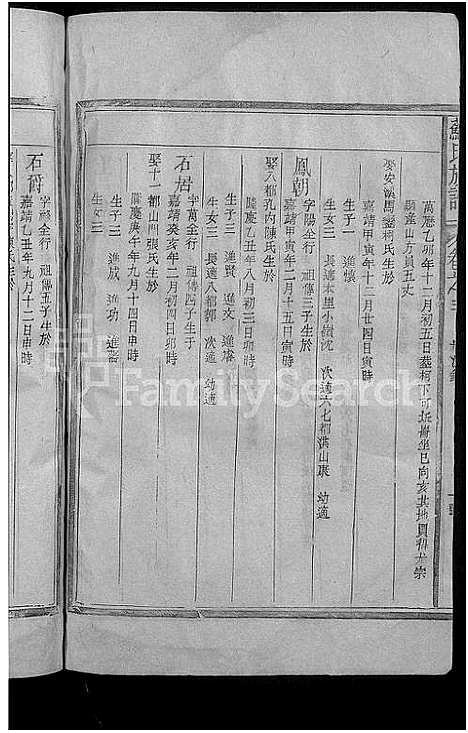 蘇氏族譜
萬曆乙卯年十一月初五日葬柯下可坵崙坐巳向亥其地圓和尤崇
顯產山方員五丈
娶安溪馬鑾柯氏生於
嘉靖甲寅年十二月廿四日寅時
生子一 進懷
鳳朝
字陽全行 祖傳三子生於
嘉靖甲寅年二月十五日寅時
娶八都孔內陳氏生於
隆慶乙丑年八月初三日卯時
生子三 進賢 進文 進睿
生女三 長適本里小嶺沈 次適六七都洪山康 幼適
石居
字萬全行 祖傳四子生于
嘉靖癸亥年二月初四日卯時
娶十一都山四張氏生於
隆慶庚午年九月十四日申時
生子三 進成 進功 進
生女三 長適八都郭 次適 幼適
生女三
石爵
字 全行 祖傳五子生於
嘉靖乙丑年九月十二日申時
FamilySearch